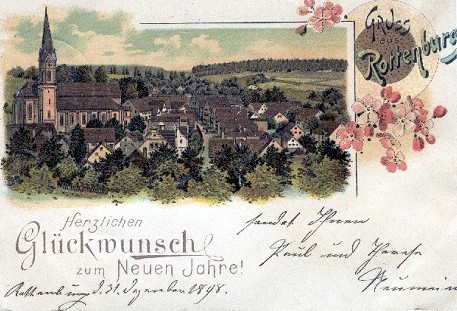 Gruss
aus
Rottenburg
Herzlichen
Glückwunsch
zum Neuen Jahre!
sendet Ihnen
Paul und Therese
Neumeier
Rottenburg d. 31. Dezember 1898.